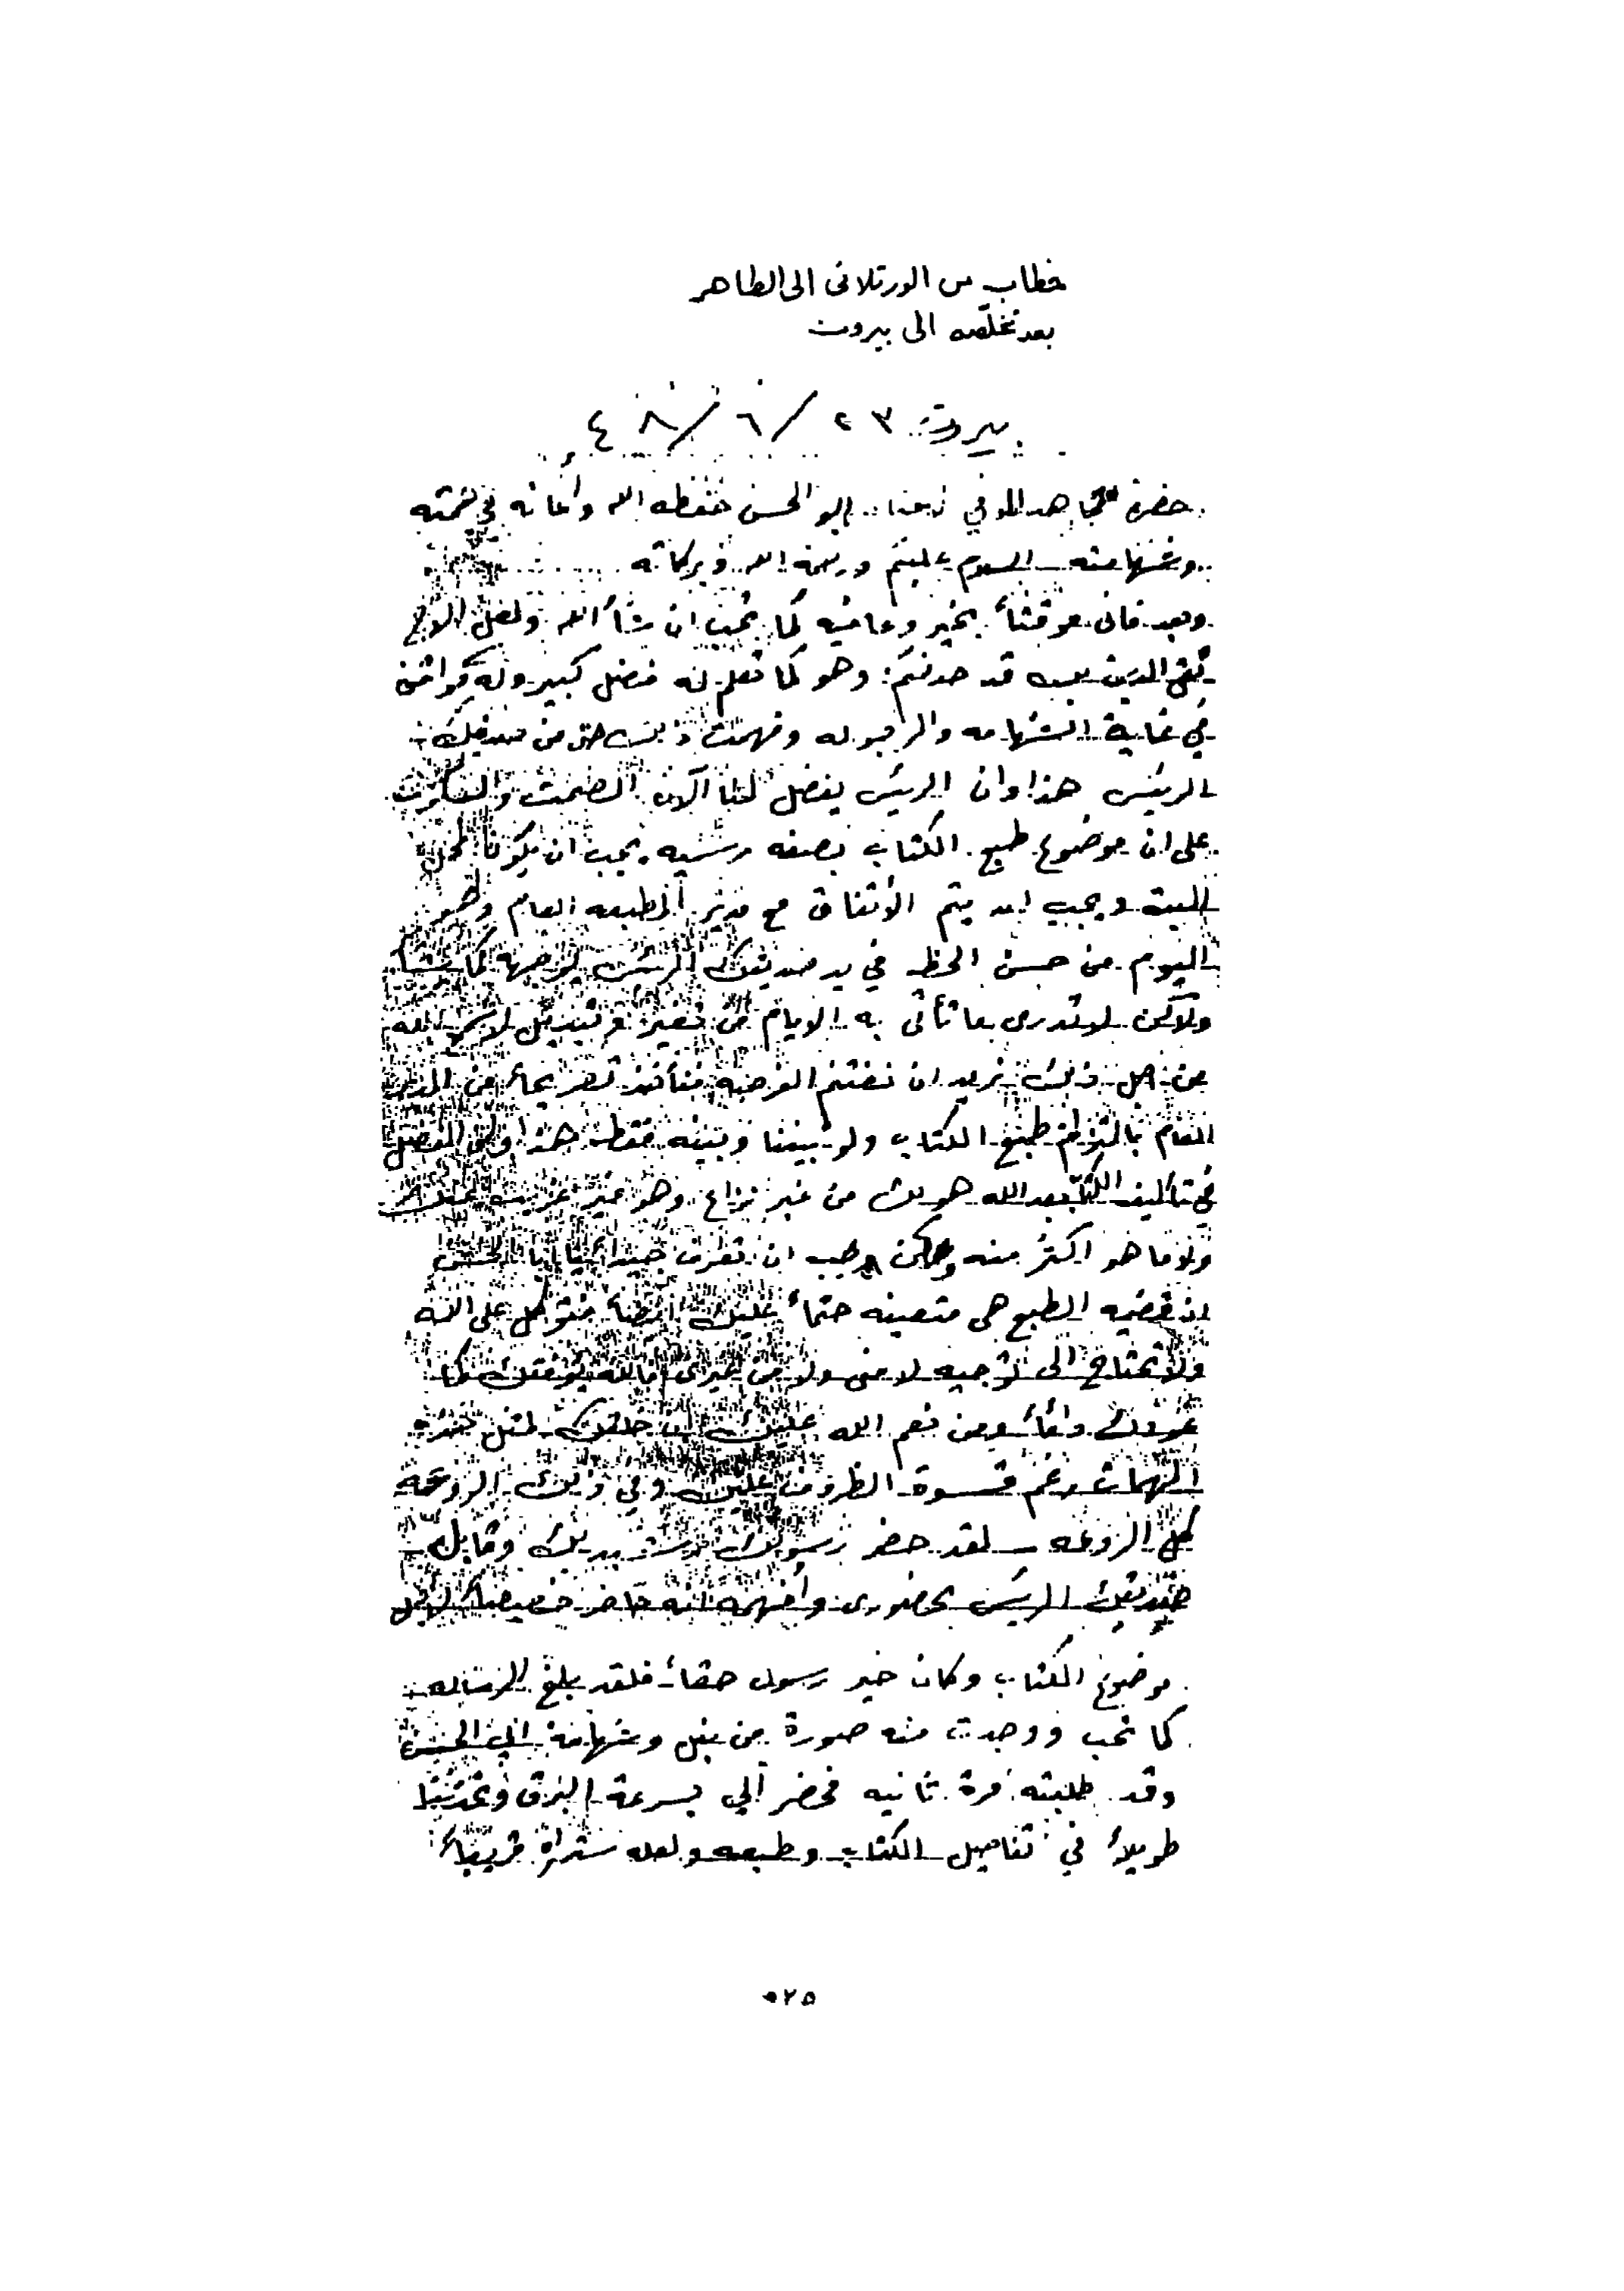 خطاب من الورتلانى الى الطاهر
بعد تخلصه الى بيروت
بيروت ٢٣/٦/٤٨
حضرة المجاهد الموفي ابو الحسن حفظه الله وأعانه في
وشهامته السلام عليكم ورحمة الله وبركاته
وبعد فانى موقتاً بخير وعافيه كما تحب ان شاء الله ولعل الاخ
تقى الدين قد حدثكم وهو كما تعلم له فضل كبير وله مواقف
في غاية الشهامه والرجوله وفهمت ذلك حتى من صديقك
الرئيس هذا وان الرئيس يفضل لنا الآن الصمت والسكوت
على ان موضوع طبع الكتاب بصفه رسميه يجب ان يكون
البتة ويجب ان يتم الأتفاق مع مدير المطبعه العام وهو
اليوم من حسن الحظ في يد صديقك الرئيس يوجهه كما يشاء
ولاكن لا تدرى ما تأتى به الايام من تغير و تبديل
من اجل ذلك نريد ان نغتنم الفرصه فنأخذ تصريحاً من المدير
العام بالتزام طبع الكتاب ولو بيننا وبينه فقط هذا وان الفضل
في تأليف الكتاب بعد الله هو لك من غير نزاع وهو غير غريب
ولا ما هو اكثر منه ولكن يجب ان تعرف جيداً يا ابا الحسن
ان قضيه الطبع هى متعينه حتماً عليك ايضاً فتوكل على الله
ولا تحتاج الى توجيه لا منى ولا من غيرى فالله يوفقك كما
عودك دائماً ومن نعم الله عليك ان خلقك لمثل هذه
المهمات رغم قسوة الظروف عليك وفي ذلك الروعه
كل الروعه – لقد حضر رسولك وقابل
صديقك الرئيس بحضورى وأفهمه انه حاضر خصيصاً لأجل
موضوع الكتاب وكان خير رسول حقاً فلقد بلغ الرساله
كما تحب ووجدت منه صورة من نبل وشهامة ابي الحسن
وقد طلبته مرة ثانيه فحضر الي بسرعة البرق وتحدثنا
طويلاً في تفاصيل الكتاب وطبعه ولعله ستراه قريباً
٥٢٥